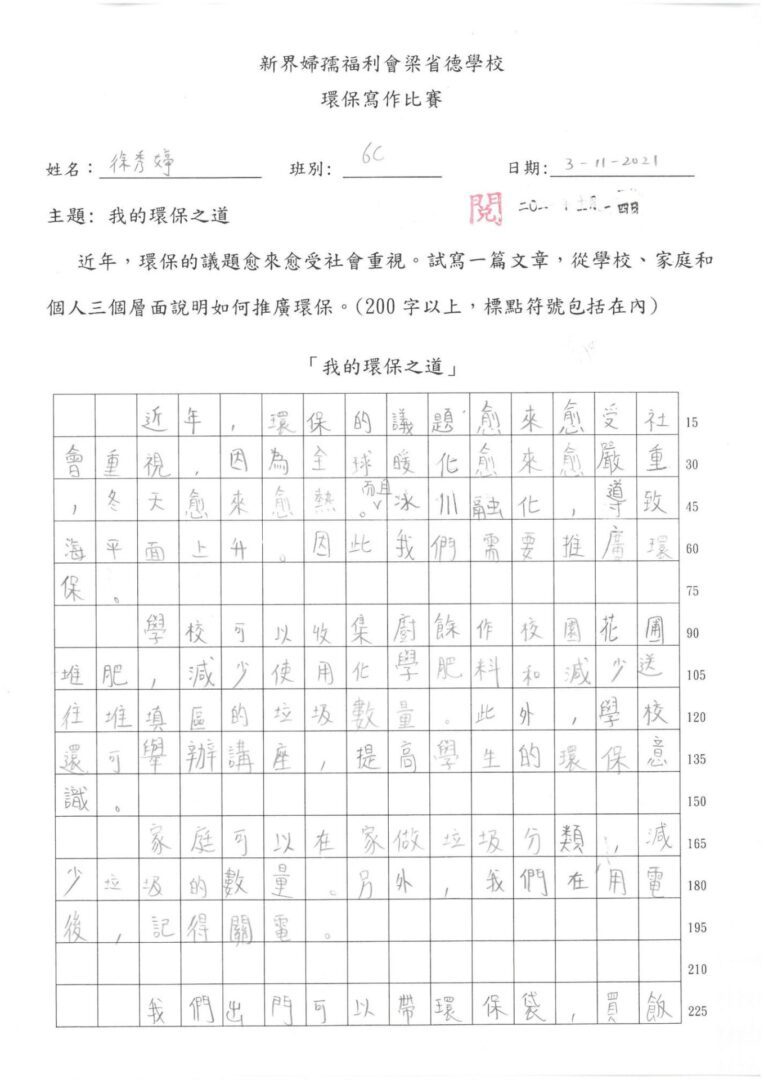 新界婦孺福利會梁省德學校
環保寫作比賽
姓名：徐秀婷 班別：6C 日期：3-11-2021
主題：我的環保之道 閱 二〇
近年，環保的議題愈來愈受社會重視。試寫一篇文章，從學校、家庭和
個人三個層面說明如何推廣環保。(200字以上，標點符號包括在內)
「我的環保之道」
近年，環保的議題愈來愈受社 15
會重視，因為全球暖化愈來愈嚴重 30
，冬天愈來愈熱。而且冰川融化，導致 45
海平面上升。因此我們需要推廣環 60
保。 75
學校可以收集廚餘作校園花圃 90
堆肥，減少使用化學肥料和減少送 105
往堆填區的垃圾數量。此外，學校 120
還可舉辦講座，提高學生的環保意 135
識。 150
家庭可以在家做垃圾分類，減 165
少垃圾的數量。另外，我們在用電 180
後，記得關電。 195
210
我們出門可以帶環保袋，買飯 225